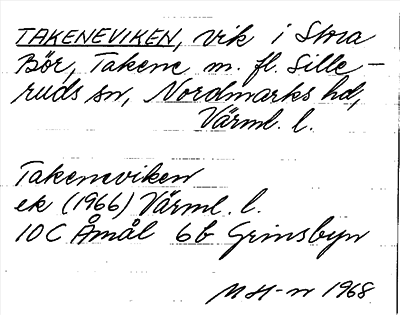 TAKENEVIKEN, vik i Stora
Bör, Takene m. fl. Sille-
ruds sn, Nordmarks hd,
Värml. l.
Takeneviken
ek (1966) Värml. l.
10C Åmål 6b Grinsbyn
MH-n 1968